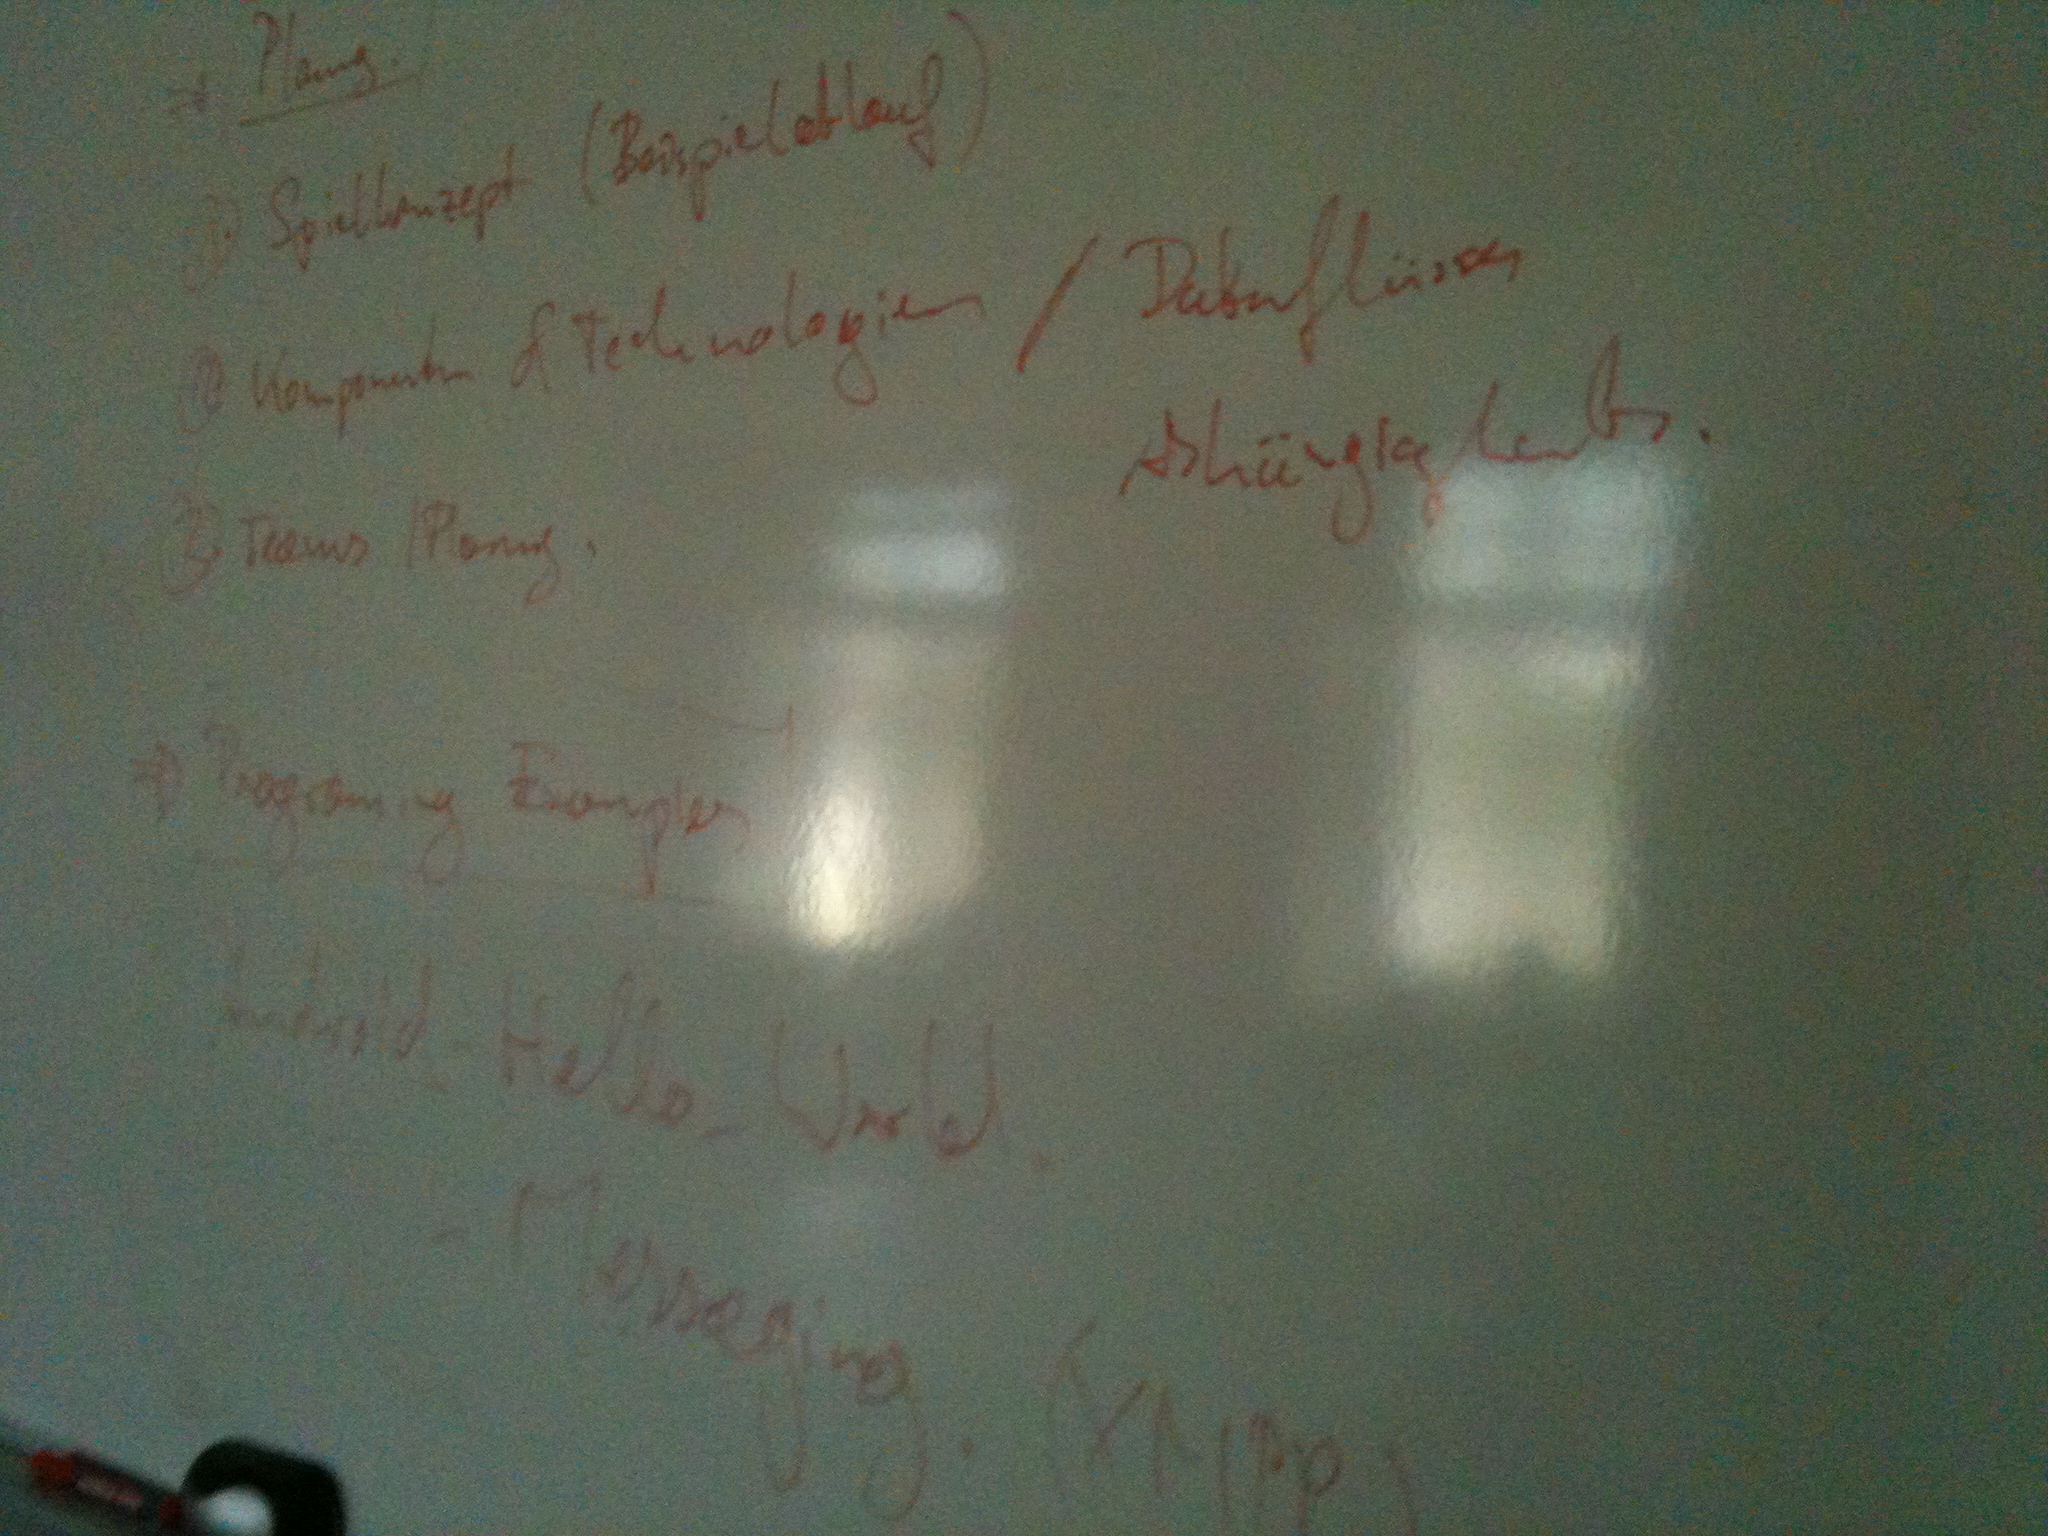 ⇒ Planung.
① Spielkonzept (Beispielablauf)
② Komponenten & Technologien / Datenflüsse
Abhängigkeiten.
③ Teams / Planung.
⇒ Programing Examples
Android - Hello - World.
- Messaging. (XMPP)